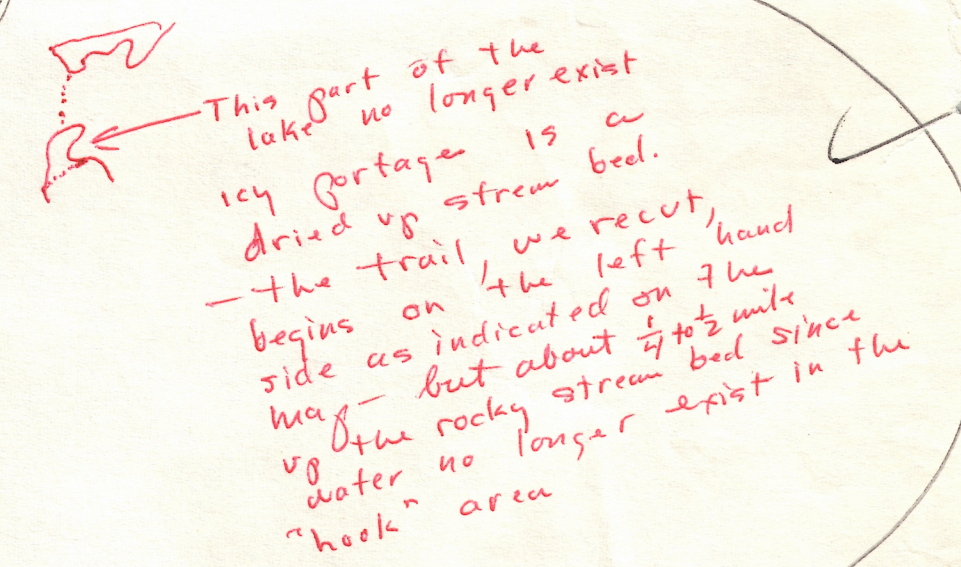 This part of the
lake no longer exist
icy portage is a
dried up stream bed.
— the trail, we recut,
begins on the left hand
side as indicated on the
map — but about 1/4 to 1/2 mile
up the rocky stream bed since
water no longer exist in the
"hook" area